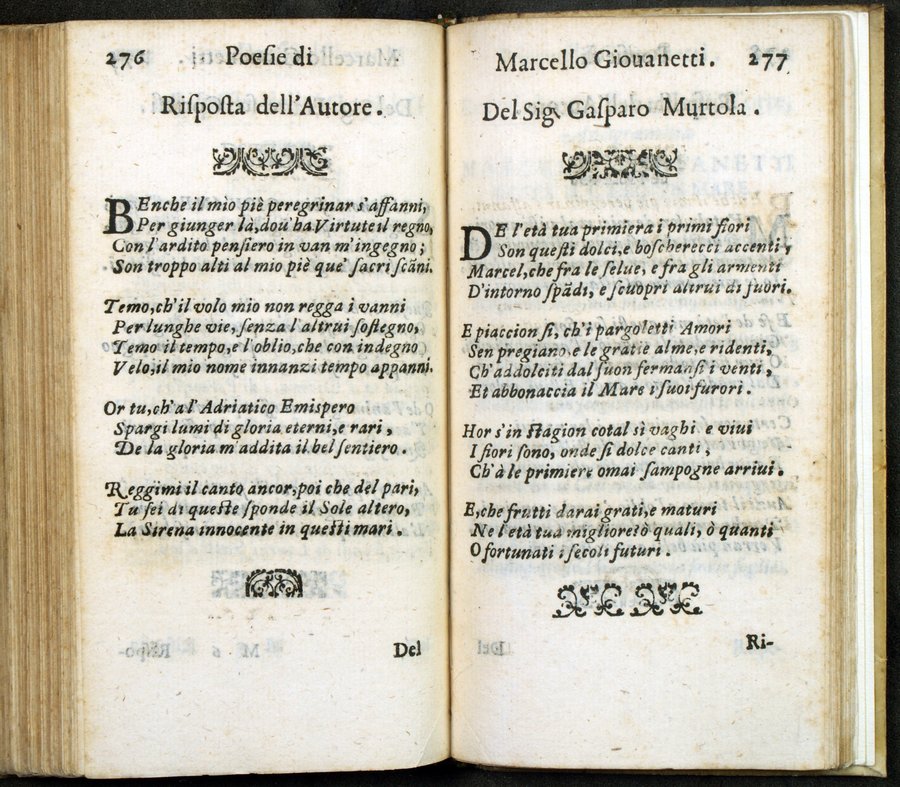 276 Poeſie di
Riſpoſta dell'Autore.
BEnche il mio piè peregrinar s'affanni,
Per giunger là, dou' ha Virtute il regno,
Con l'ardito penſiero in van m'ingegno;
Son troppo alti al mio piè que' ſacri ſcãni.
Temo, ch'il volo mio non regga i vanni
Per lunghe vie, ſenza l'altrui ſoſtegno,
Temo il tempo, e l'oblio, che con indegno
Velo, il mio nome innanzi tempo appanni.
Or tu, ch'a l'Adriatico Emispero
Spargi lumi di gloria eterni, e rari,
De la gloria m'addita il bel ſentiero.
Reggimi il canto ancor, poi che del pari,
Tu ſei di queſte ſponde il Sole altero,
La Sirena innocente in queſti mari.
Del
Marcello Giouanetti. 277
Del Sig. Gaſparo Murtola.
DE l'età tua primiera i primi fiori
Son queſti dolci, e boſcherecci accenti,
Marcel, che fra le ſelue, e fra gli armenti
D'intorno ſpãdi, e ſcuopri altrui di fuori.
E piaccion ſi, ch'i pargoletti Amori
Sen pregiano, e le gratie alme, e ridenti,
Ch'addolciti dal ſuon fermanſi i venti,
Et abbonaccia il Mare i ſuoi furori.
Hor s'in ſtagion cotal sì vaghi e viui
I fiori ſono, onde ſi dolce canti,
Ch'à le primiere omai ſampogne arriui.
E, che frutti darai grati, e maturi
Ne l'età tua migliore? ò quali, ò quanti
O fortunati i ſecoli futuri.
Ri-